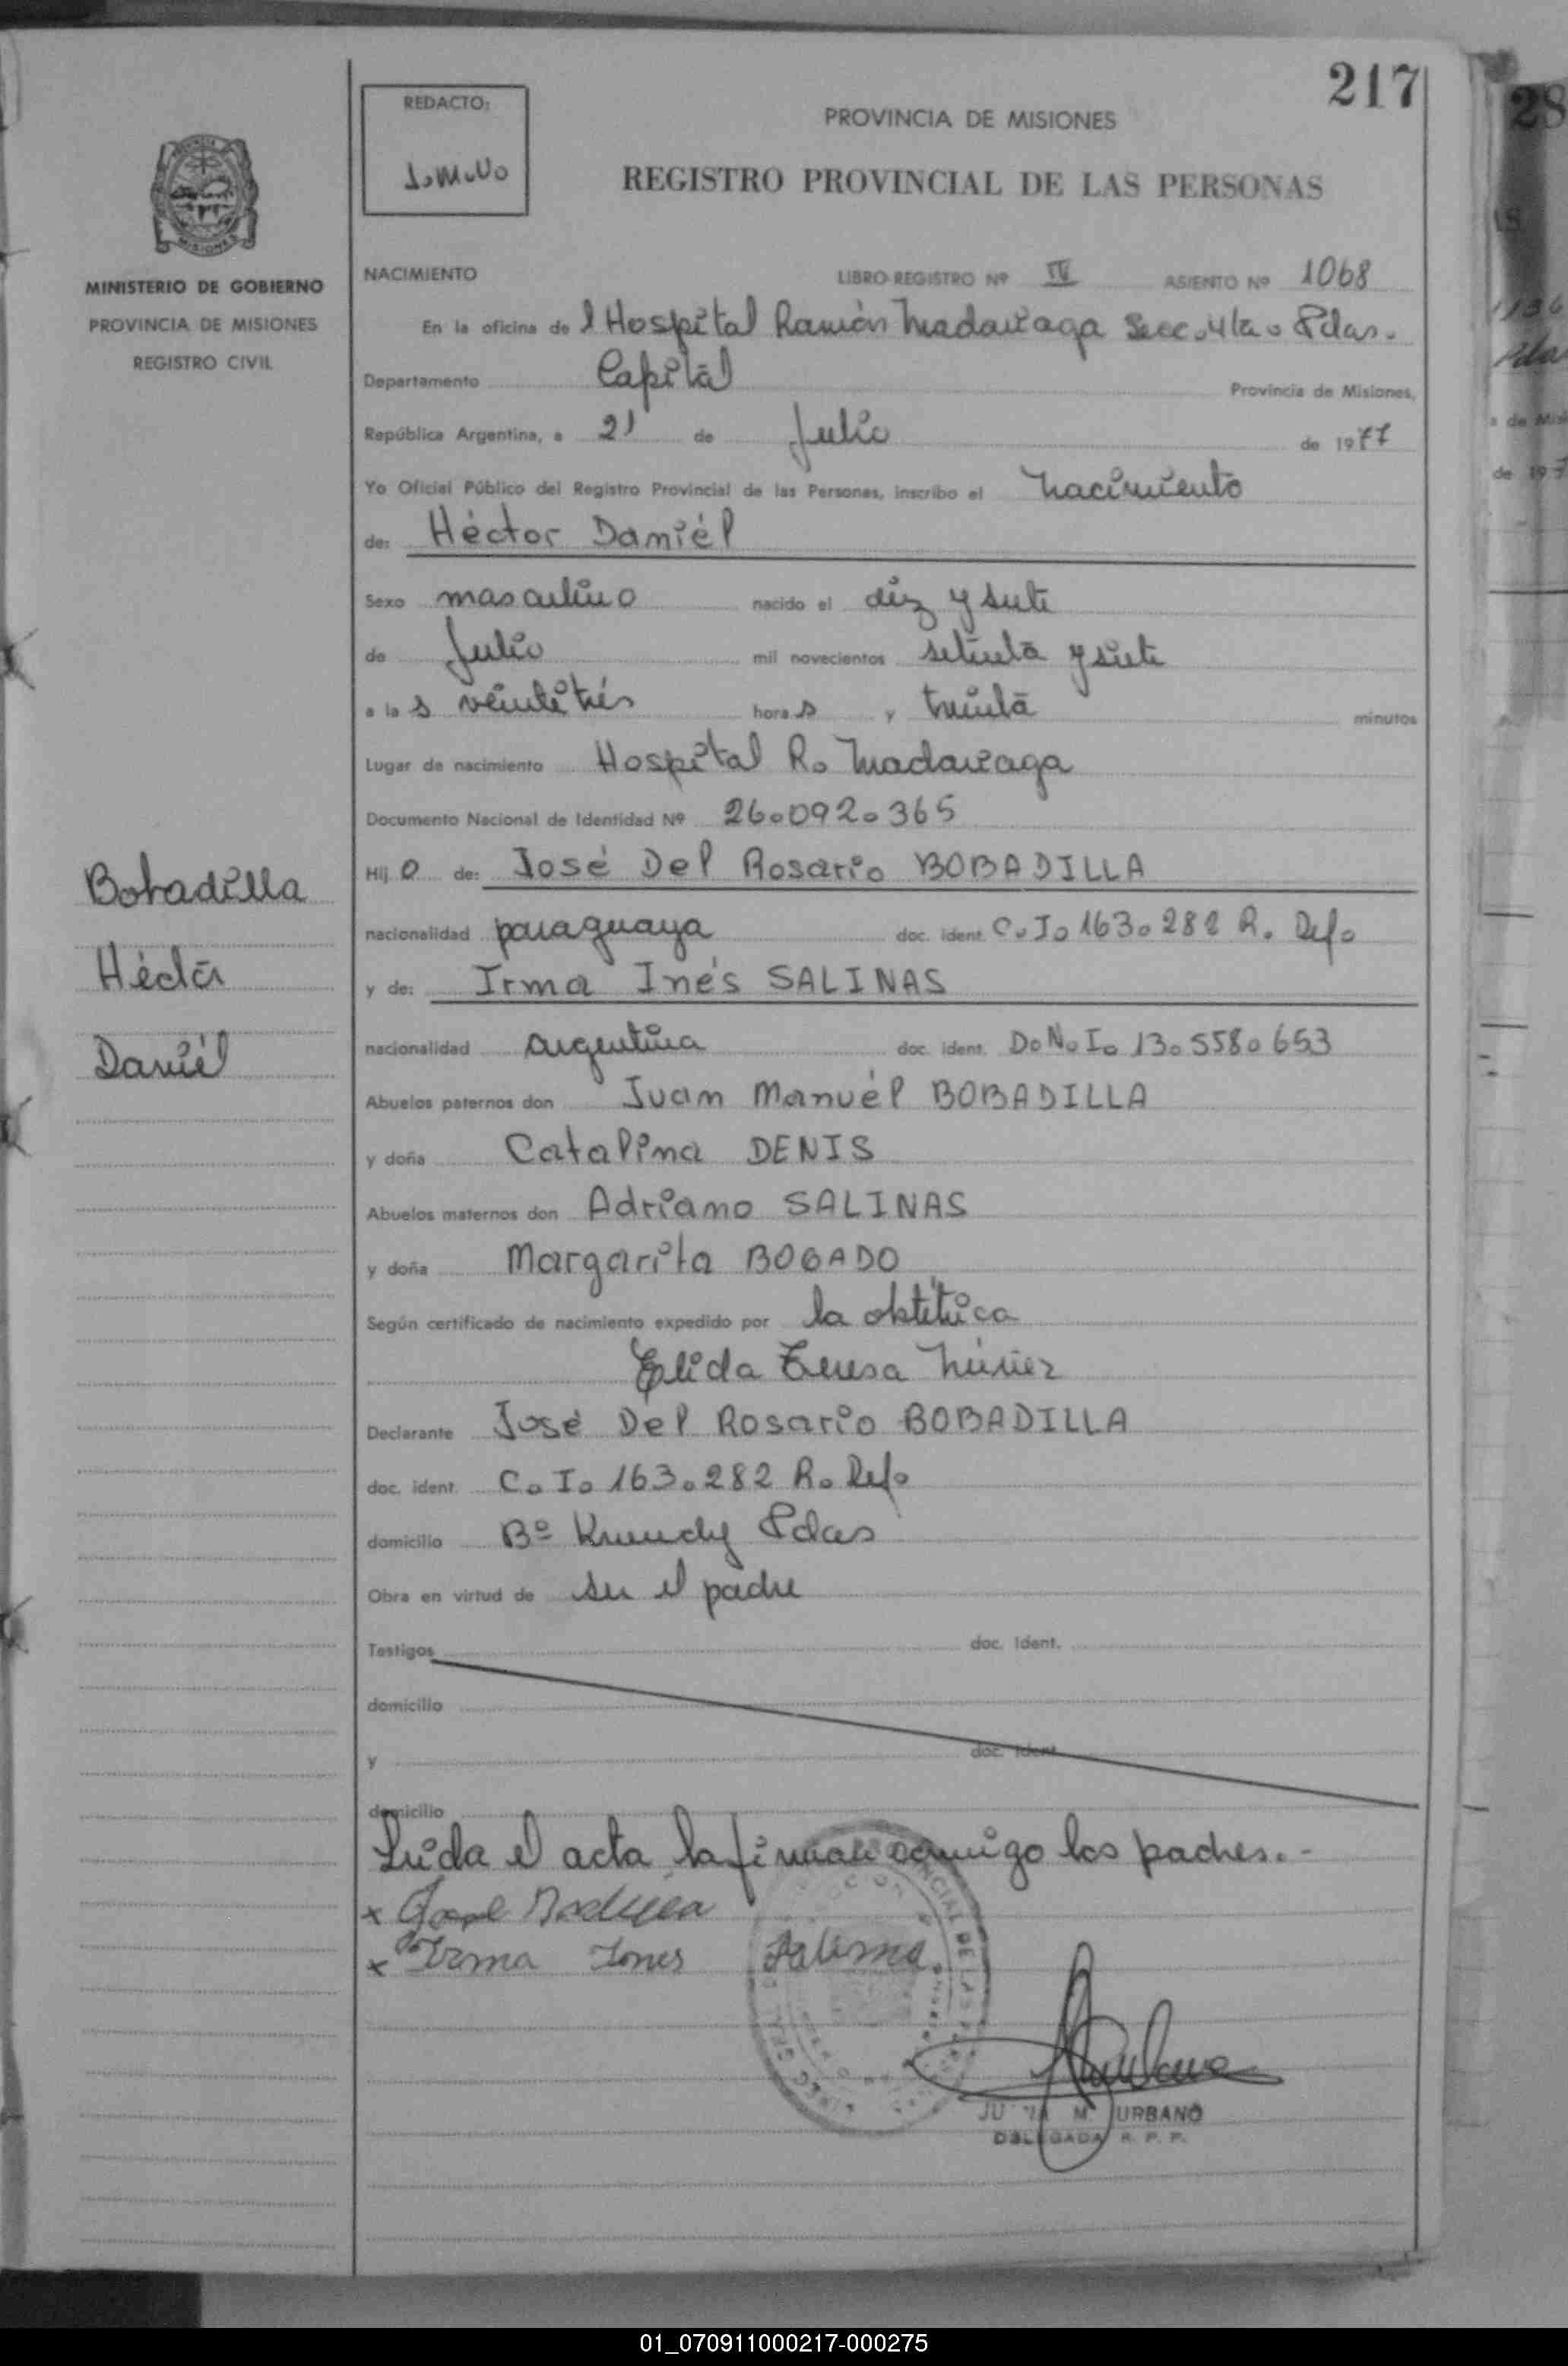 217
REDACTO:
J.M.U.
PROVINCIA DE MISIONES
REGISTRO PROVINCIAL DE LAS PERSONAS
MINISTERIO DE GOBIERNO
PROVINCIA DE MISIONES
REGISTRO CIVIL
NACIMIENTO LIBRO-REGISTRO Nº IV ASIENTO Nº 1068
En la oficina del Hospital Ramón Madariaga Secc. 4ta. Pdas.
Departamento Capital Provincia de Misiones,
República Argentina, a 21 de Julio de 1977
Yo Oficial Público del Registro Provincial de las Personas, inscribo el nacimiento
de: Héctor Daniél
Sexo masculino nacido el diez y siete
de Julio mil novecientos setenta y siete
a las veintitrés horas y treinta minutos
Lugar de nacimiento Hospital R. Madariaga
Documento Nacional de Identidad Nº 26.092.365
Hijo de: José Del Rosario BOBADILLA
nacionalidad paraguaya doc. ident. C.I. 163.282 R. Def.
y de: Irma Inés SALINAS
nacionalidad argentina doc. ident. D.N.I. 13.558.653
Abuelos paternos don Juan Manuél BOBADILLA
y doña Catalina DENIS
Abuelos maternos don Adriano SALINAS
y doña Margarita BOGADO
Según certificado de nacimiento expedido por la obstétrica
Elida Teresa Núñez
Declarante José Del Rosario BOBADILLA
doc. ident. C.I. 163.282 R. Def.
domicilio Bº Kennedy Pdas
Obra en virtud de ser el padre
Testigos doc. Ident.
domicilio
y doc. ident.
domicilio
Leída el acta la firman conmigo los padres.-
x José
x Irma Ines Salinas
M. URBANO
DELEGADA R. P. P.
Bobadilla
Héctor
Daniél
01_070911000217-000275